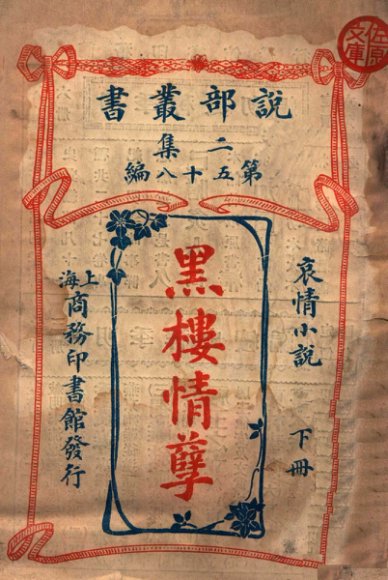 說部叢書
二集
第五十八編
哀情小說 下冊
黑樓情孽
上海商務印書館發行
佐原文庫